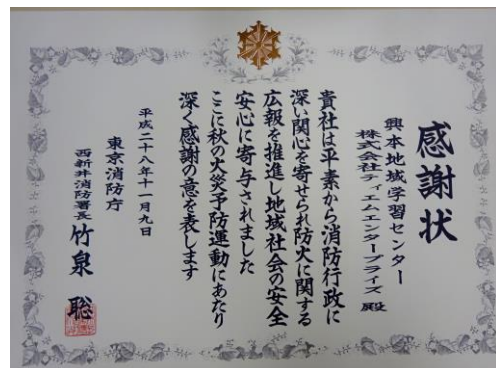 感謝状
興本地域学習センター
株式会社ティエムエンタープライズ 殿
貴社は平素から消防行政に
深い関心を寄せられ防火に関する
広報を推進し地域社会の安全
安心に寄与されました
ここに秋の火災予防運動にあたり
深く感謝の意を表します
平成二十八年十一月九日
東京消防庁
西新井消防署長 竹泉 聡